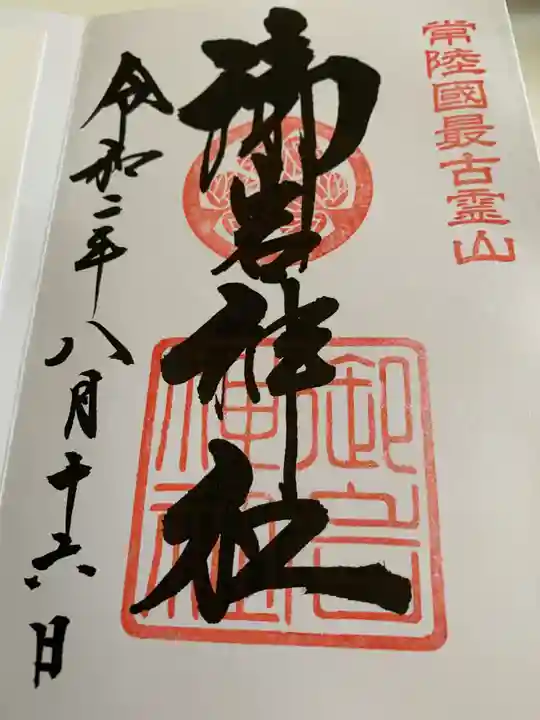 常陸國最古霊山
御岩神社
御岩
神社
令和二年八月十六日